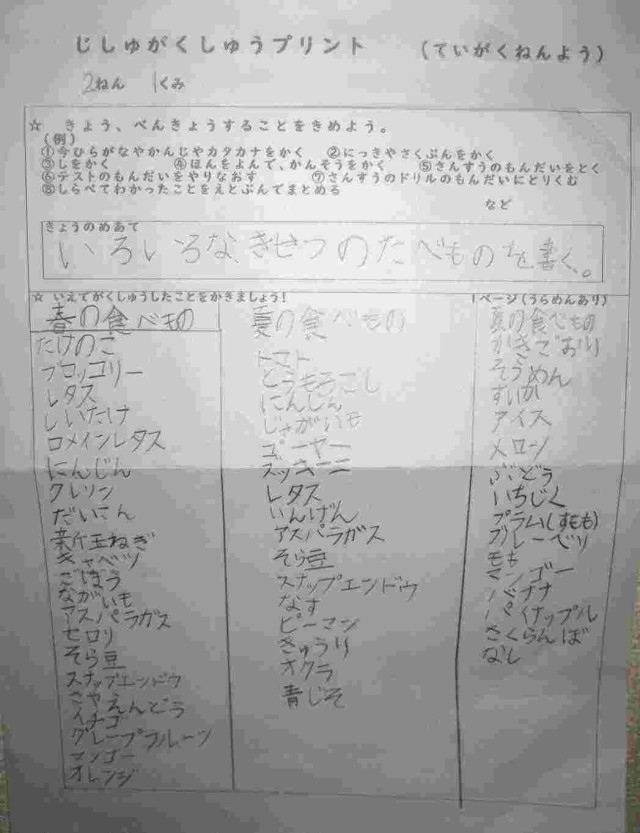 じしゅがくしゅうプリント （ていがくねんよう）
2ねん 1くみ
☆ きょう、べんきょうすることをきめよう。
（例）
①今ひらがなやかんじやカタカナをかく ②にっきやさくぶんをかく
③しをかく ④ほんをよんで、かんそうをかく ⑤さんすうのもんだいをとく
⑥テストのもんだいをやりなおす ⑦さんすうのドリルのもんだいにとりくむ
⑧しらべてわかったことをえとぶんでまとめる
など
きょうのめあて
いろいろなきせつのたべものを書く。
☆ いえでがくしゅうしたことをかきましょう！
春の食べもの
たけのこ
ブロッコリー
レタス
しいたけ
ロメインレタス
にんじん
クレソン
だいこん
新玉ねぎ
キャベツ
ごぼう
ながいも
アスパラガス
セロリ
そら豆
スナップエンドウ
さやえんどう
イチゴ
グレープフルーツ
マンゴー
オレンジ
夏の食べもの
トマト
とうもろこし
にんじん
じゃがいも
ゴーヤー
ズッキーニ
レタス
いんげん
アスパラガス
そら豆
スナップエンドウ
なす
ピーマン
きゅうり
オクラ
青じそ
1ページ（うらめんあり）
夏の食べもの
かきごおり
そうめん
すいか
アイス
メロン
ぶどう
いちじく
プラム(すもも)
ブルーベリ
もも
マンゴー
バナナ
パイナップル
さくらんぼ
なし